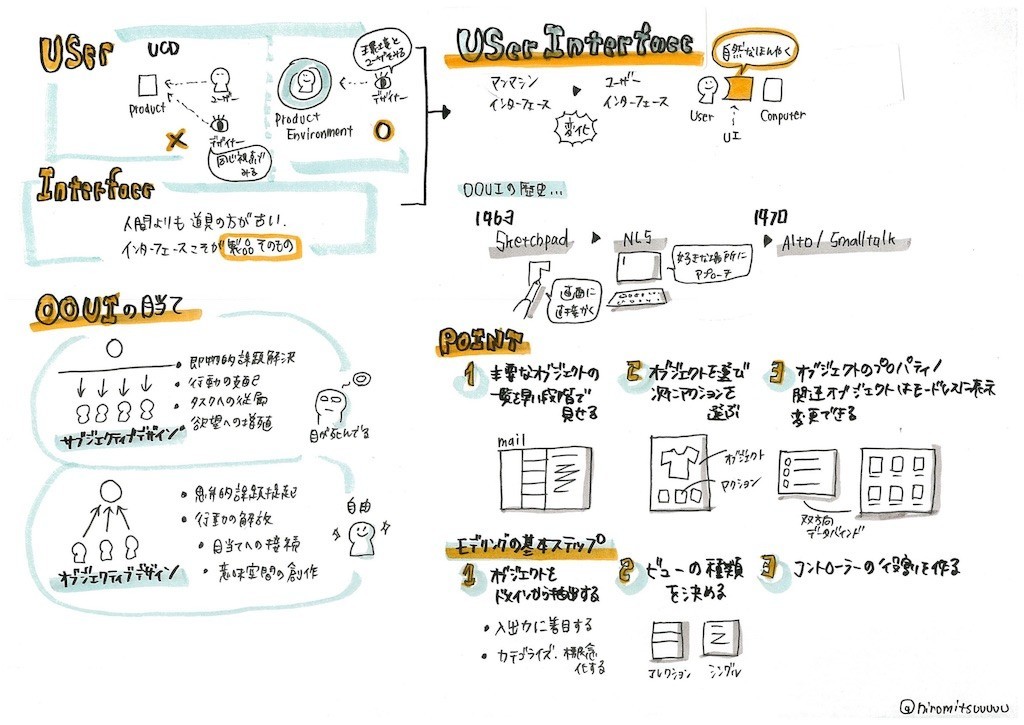 User
UCD
Product
ユーザー
デザイナー
同じ視点で
みる
Product
Environment
主環境と
ユーザをみる
デザイナー
Interface
人間よりも道具の方が古い.
インターフェースこそが製品そのもの
OOUIの目当て
即物的課題解決
行動の支配
タスクへの従属
欲望への増殖
サブジェクティブデザイン
目が死んでる
思弁的課題提起
行動の解放
目当てへの接続
意味空間の創作
オブジェクティブデザイン
自由
User Interface
マンマシン
インターフェース
ユーザー
インターフェース
変化
自然なほんやく
User
UI
Computer
OOUIの歴史...
1963
Sketchpad
NLS
1970
Alto/Smalltalk
画面に
直接かく
好きな場所に
アプローチ
POINT
1 主要なオブジェクトの
一覧を早い段階で
見せる
mail
2 オブジェクトを選び
次にアクションを
選ぶ
オブジェクト
アクション
3 オブジェクトのプロパティ/
関連オブジェクトはモードレスに表示
変更できる
双方向
データバインド
モデリングの基本ステップ
1 オブジェクトを
ドメインから抽出する
入出力に着目する
カテゴライズ、概念
化する
2 ビューの種類
を決める
コレクション
シングル
3 コントローラーの役割を作る
@hiromitsuuuuu